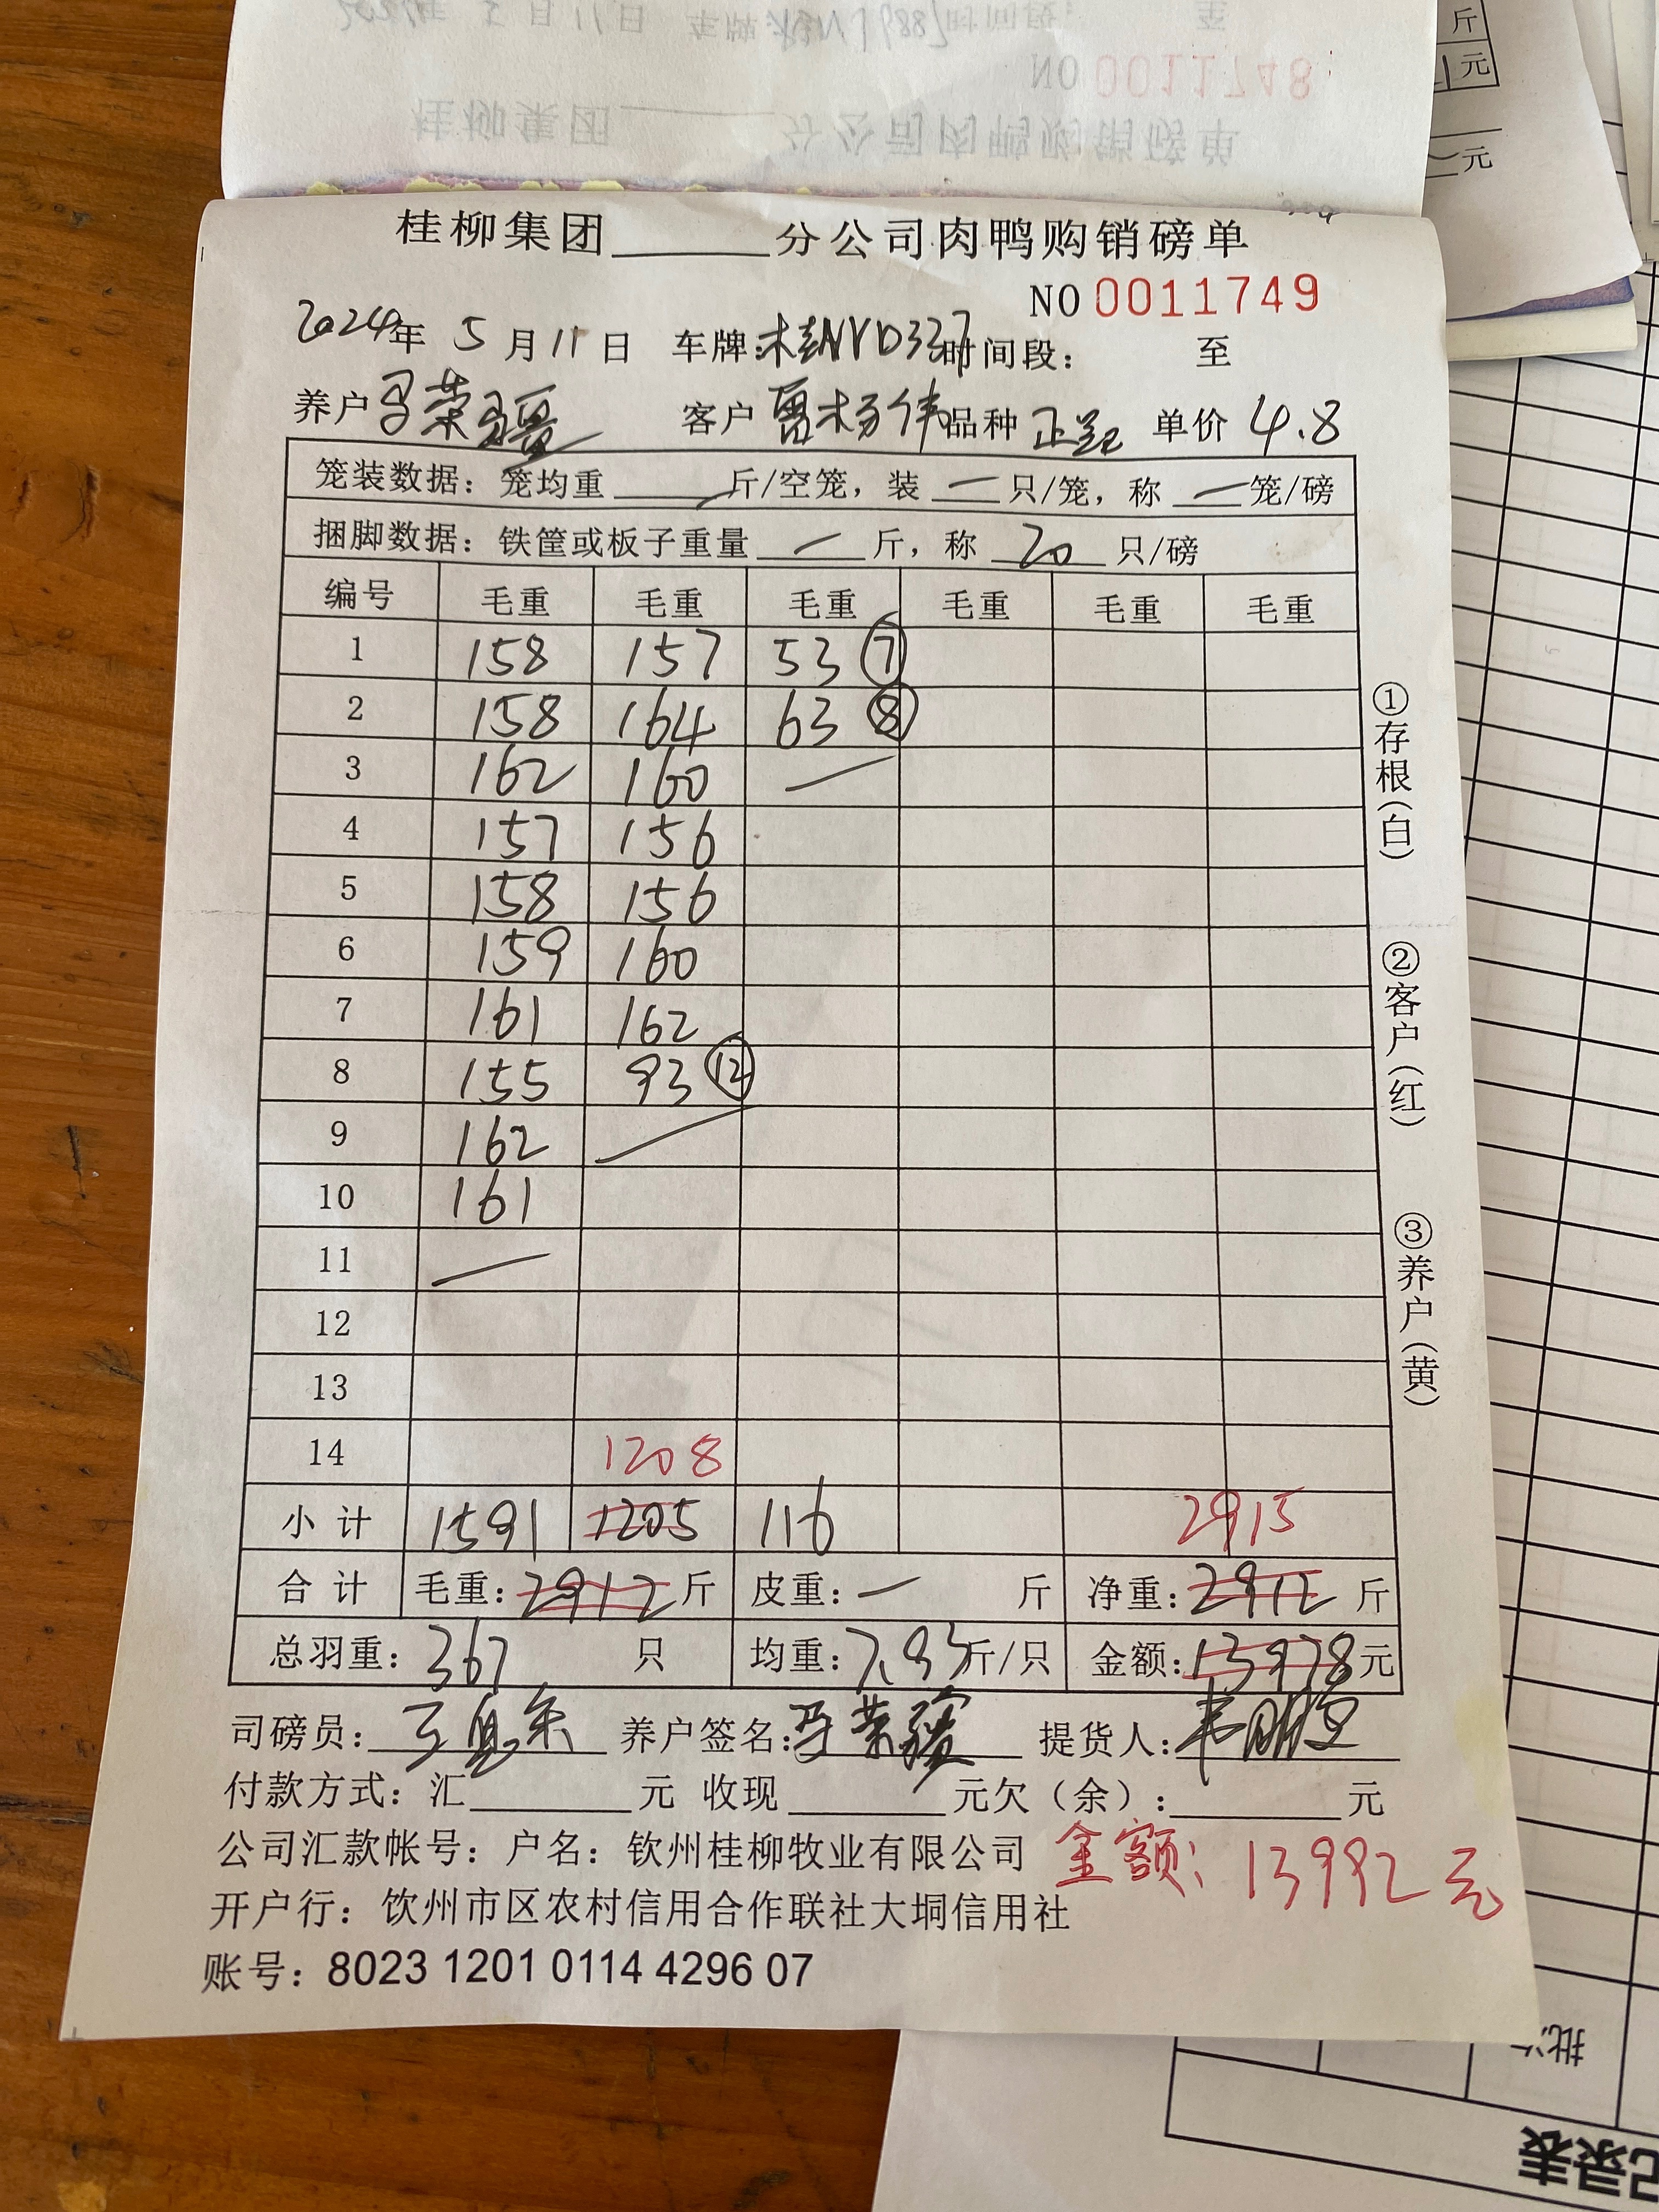 NO 0011748
桂柳集团______分公司肉鸭购销磅单
斤
元
元
桂柳集团______分公司肉鸭购销磅单
NO 0011749
2024年 5 月 11 日 车牌:桂NYD337 时间段: 至
养户 冯荣疆 客户 曾杨伟 品种 正 单价 4.8
笼装数据: 笼均重 ____ 斤/空笼, 装 一 只/笼, 称 一 笼/磅
捆脚数据: 铁筐或板子重量 一 斤, 称 20 只/磅
编号 毛重 毛重 毛重 毛重 毛重 毛重
1 158 157 53 ⑦
2 158 164 63 ⑧
3 162 160 一
4 157 156
5 158 156
6 159 160
7 161 162
8 155 93 ⑫
9 162 一
10 161
11 一
12
13
14 1208
小计 1591 1205 116 2915
合计 毛重: 2912 斤 皮重: 一 斤 净重: 2912 斤
总羽重: 367 只 均重: 7.93 斤/只 金额: 13978 元
司磅员: 养户签名: 冯荣疆 提货人:
付款方式: 汇______元 收现______元欠(余):______元
公司汇款帐号: 户名: 钦州桂柳牧业有限公司 金额: 13992 元
开户行: 钦州市区农村信用合作联社大垌信用社
账号: 8023 1201 0114 4296 07
①存根(白)
②客户(红)
③养户(黄)
批次
记录表